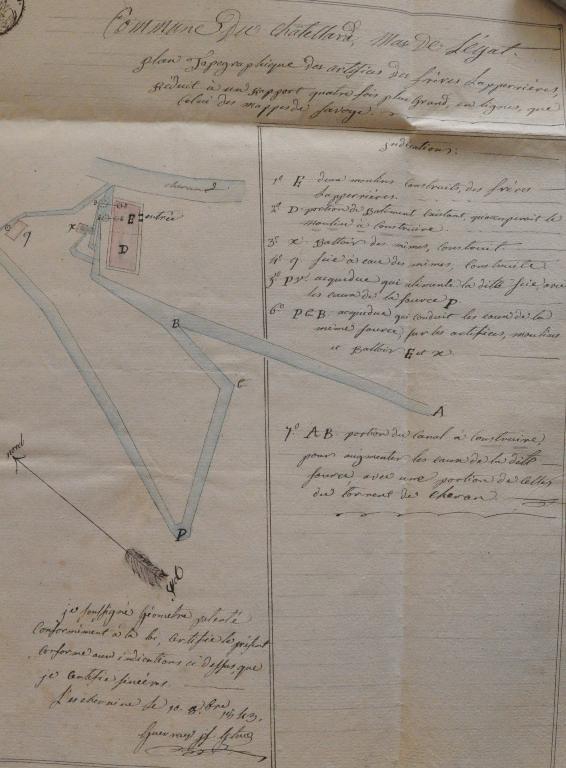 Commune Du Chatellard, Mas De Légat.
plan Topographique des artifices des frères Lapperrières,
Réduit à un Rapport quatre fois plus Grand, en lignes, que
Celui des mappes de Savoye.
Indications:
1º E deux moulins Construits, des frères
Lapperrières.
2º D portion de Batiment Existant, qu'occuperait le
moulin à Construire.
3º x Battoir des mêmes, Construit
4º q Scie à eau des mêmes, Construite
5º P acqueduc qui alimente la ditte Scie avec
les eaux de la Source P
6º P C B acqueduc qui conduit les eaux de la
même Source, sur les artifices, moulins
et Battoir E et x.
7º A B portion du Canal à Construire,
pour augmenter les eaux de la ditte
Source avec une portion de Celles
du torrent de Cheran
cheran
Entrée
E
D
x
q
B
C
A
P
nord
je soussigné Géomètre patenté
Conformément à la loi, Certifie le présent
Conforme aux indications ci dessus, que
je Certifie sincères.
Lescheraine le 10 8.bre 1843.